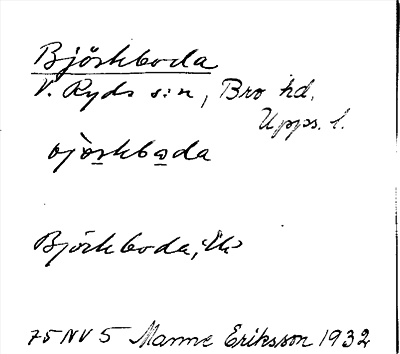 Björkboda
V. Ryds s:n, Bro hd.
Upps. l.
Björkboda,
75 NV 5 Manne Eriksson 1932